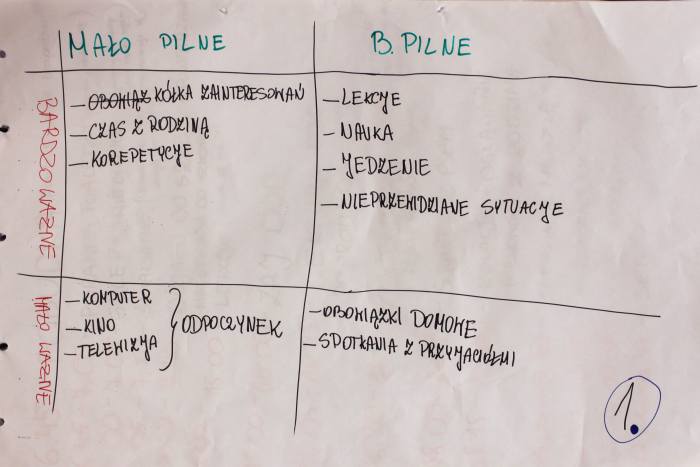 MAŁO PILNE
B. PILNE
BARDZO WAŻNE
– OBOWIĄZ KÓŁKA ZAINTERESOWAŃ
– CZAS Z RODZINĄ
– KOREPETYCJE
– LEKCJE
– NAUKA
– JEDZENIE
– NIEPRZEWIDZIANE SYTUACJE
MAŁO WAŻNE
– KOMPUTER
– KINO
– TELEWIZJA
ODPOCZYNEK
– OBOWIĄZKI DOMOWE
– SPOTKANIA Z PRZYJACIÓŁMI
1.